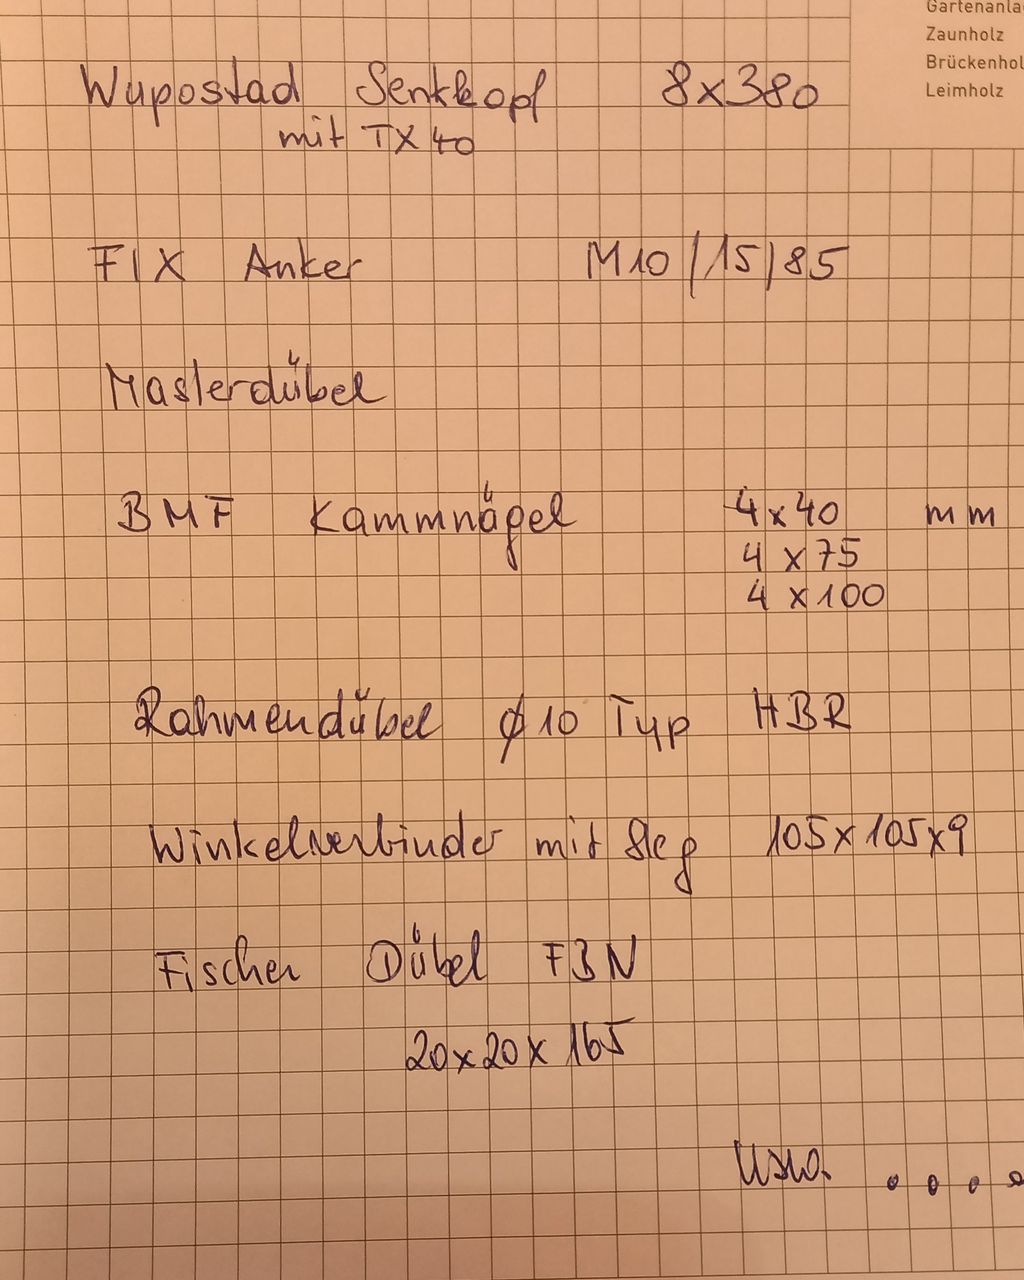 Gartenanla
Zaunholz
Brückenhol
Leimholz
Wupostad Senkkopf 8x380
mit TX 40
FIX Anker M10/15/85
Masterdübel
BMF Kammnägel 4x40 mm
4x75
4x100
Rahmendübel ϕ10 Typ HBR
Winkelverbinder mit Steg 105x105x9
Fischer Dübel FBN
20x20x165
usw. ....